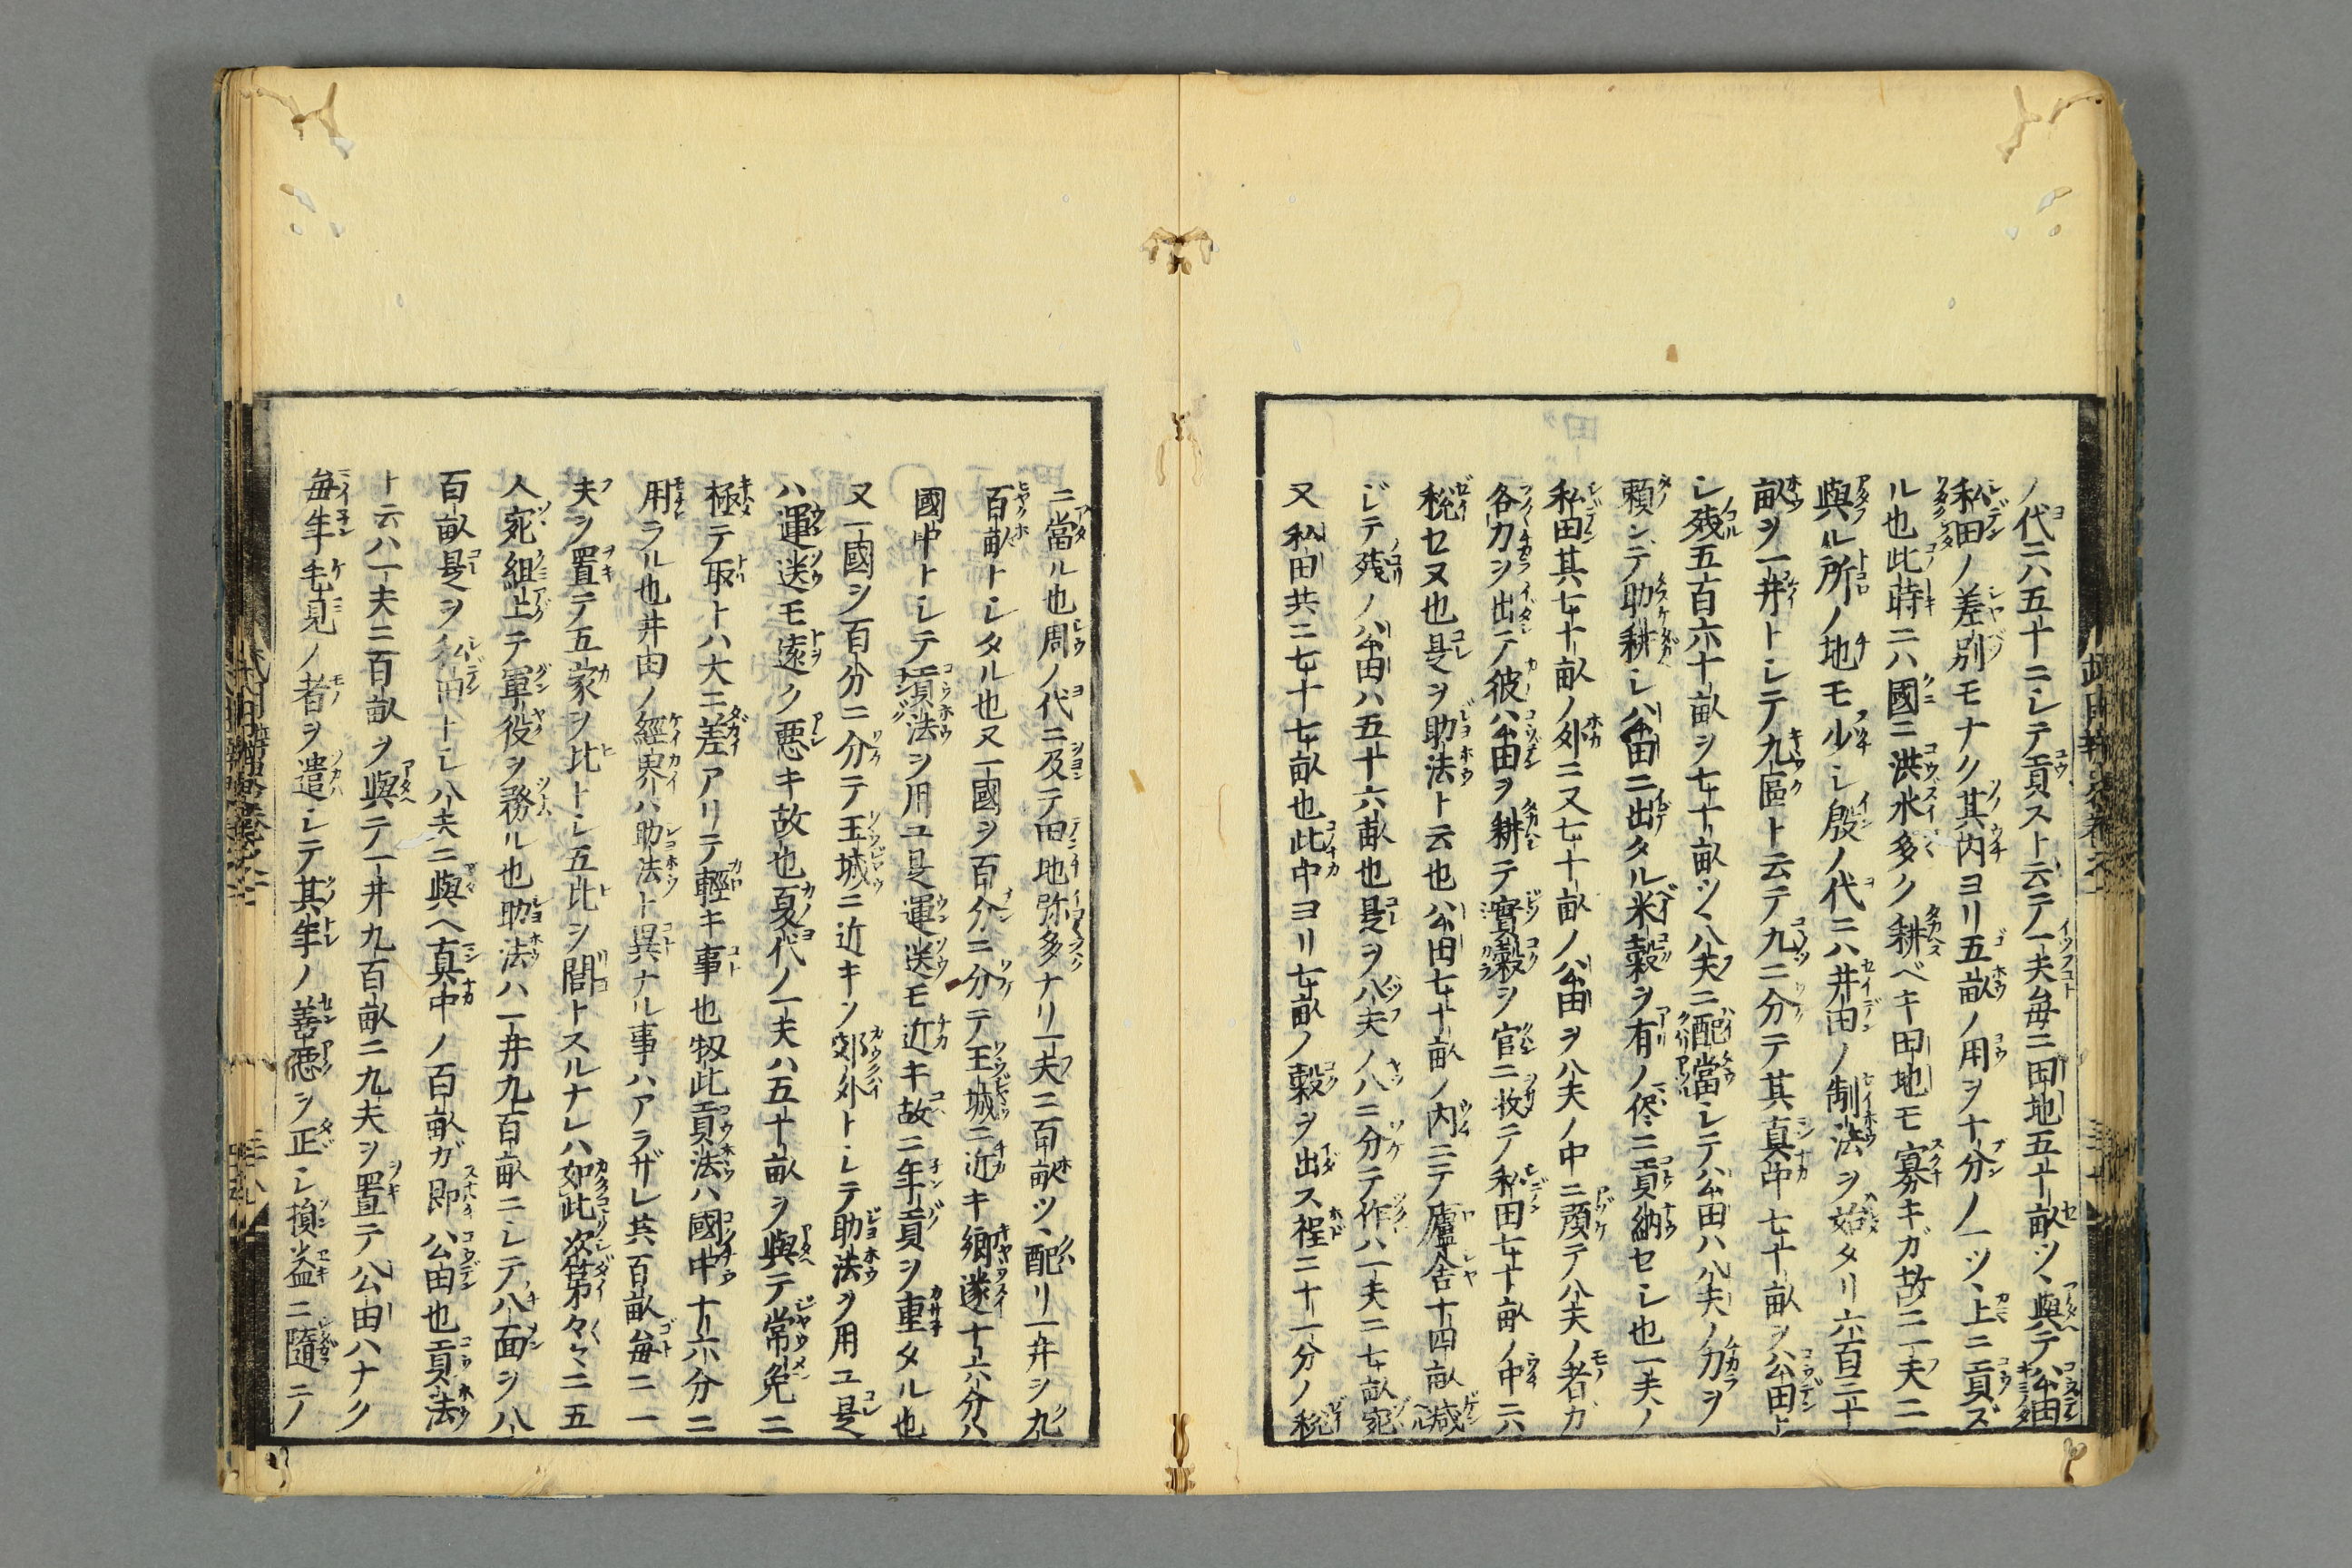 ノ代ニハ五十ニシテ貢スト云テ一夫毎ニ田地五十畝ツヽ與テ公田
私田ノ差別モナク其内ヨリ五畝ノ用ヲ十分ノ一ツヽ上ニ貢ズ
ル也此時ニハ國ニ洪水多ク耕ベキ田地モ寡キガ故ニ一夫ニ
與ル所ノ地モ少シ殷ノ代ニハ井田ノ制法ヲ始タリ六百三十
畝ヲ一井トシテ九區ト云テ九ニ分テ其真中七十畝ヲ公田ト
シ残五百六十畝ヲ七十畝ツヽ八夫ニ配當シテ公田ハ八夫ノ力ヲ
頼ンデ助耕シ公田ニ出タル米穀ヲ有ノ侭ニ貢納セシ也一夫ノ
私田其七十畝ノ外ニ又七十畝ノ公田ヲ八夫ノ中ニ預テ八夫ノ者ガ
各力ヲ出テ彼公田ヲ耕テ實穀ヲ官ニ收テ私田七十畝ノ中ニ六
税セヌ也是ヲ助法ト云也公田七十畝ノ内ニテ廬舍十四畝減
ジテ残ノ公田ハ五十六畝也是ヲ八夫ノ八ニ分テ作ハ一夫ニ七畝宛
又私田共ニ七十七畝也此中ヨリ七畝ノ穀ヲ出ス程ニ十一分ノ税
ニ當ル也周ノ代ニ及テ田地弥多ナリ一夫ニ百畝ツヽ配リ一井ヲ九
百畝トシタル也又一國ヲ百分ニ分テ王城ニ近キ郷遂十六分ハ
國中トシテ貢法ヲ用ユ是運送モ近キ故ニ年貢ヲ重タル也
又一國ヲ百分ニ分テ王城ニ近キヲ郊外トシテ助法ヲ用ユ是
ハ運送モ遠ク悪キ故也夏代ノ一夫ハ五十畝ヲ與テ常免ニ
極テ取トハ大ニ差アリテ輕キ事也扨此貢法ハ國中十六分ニ
用ラル也井田ノ經界ハ助法ト異ナル事ハアラザレ共百畝毎ニ一
夫ヲ置テ五家ヲ比トシ五比ヲ閭トスルナレハ如此次第々々ニ五
人宛組上テ軍役ヲ務ル也助法ハ一井九百畝ニシテ八面ヲ八
百畝是ヲ私田トシ八夫ニ與ヘ真中ノ百畝ガ即公田也貢法
ト云ハ一夫ニ百畝ヲ與テ一井九百畝ニ九夫ヲ置テ公田ハナク
毎年毛見ノ者ヲ遣シテ其年ノ善悪ヲ正シ損益ニ隨ニノ